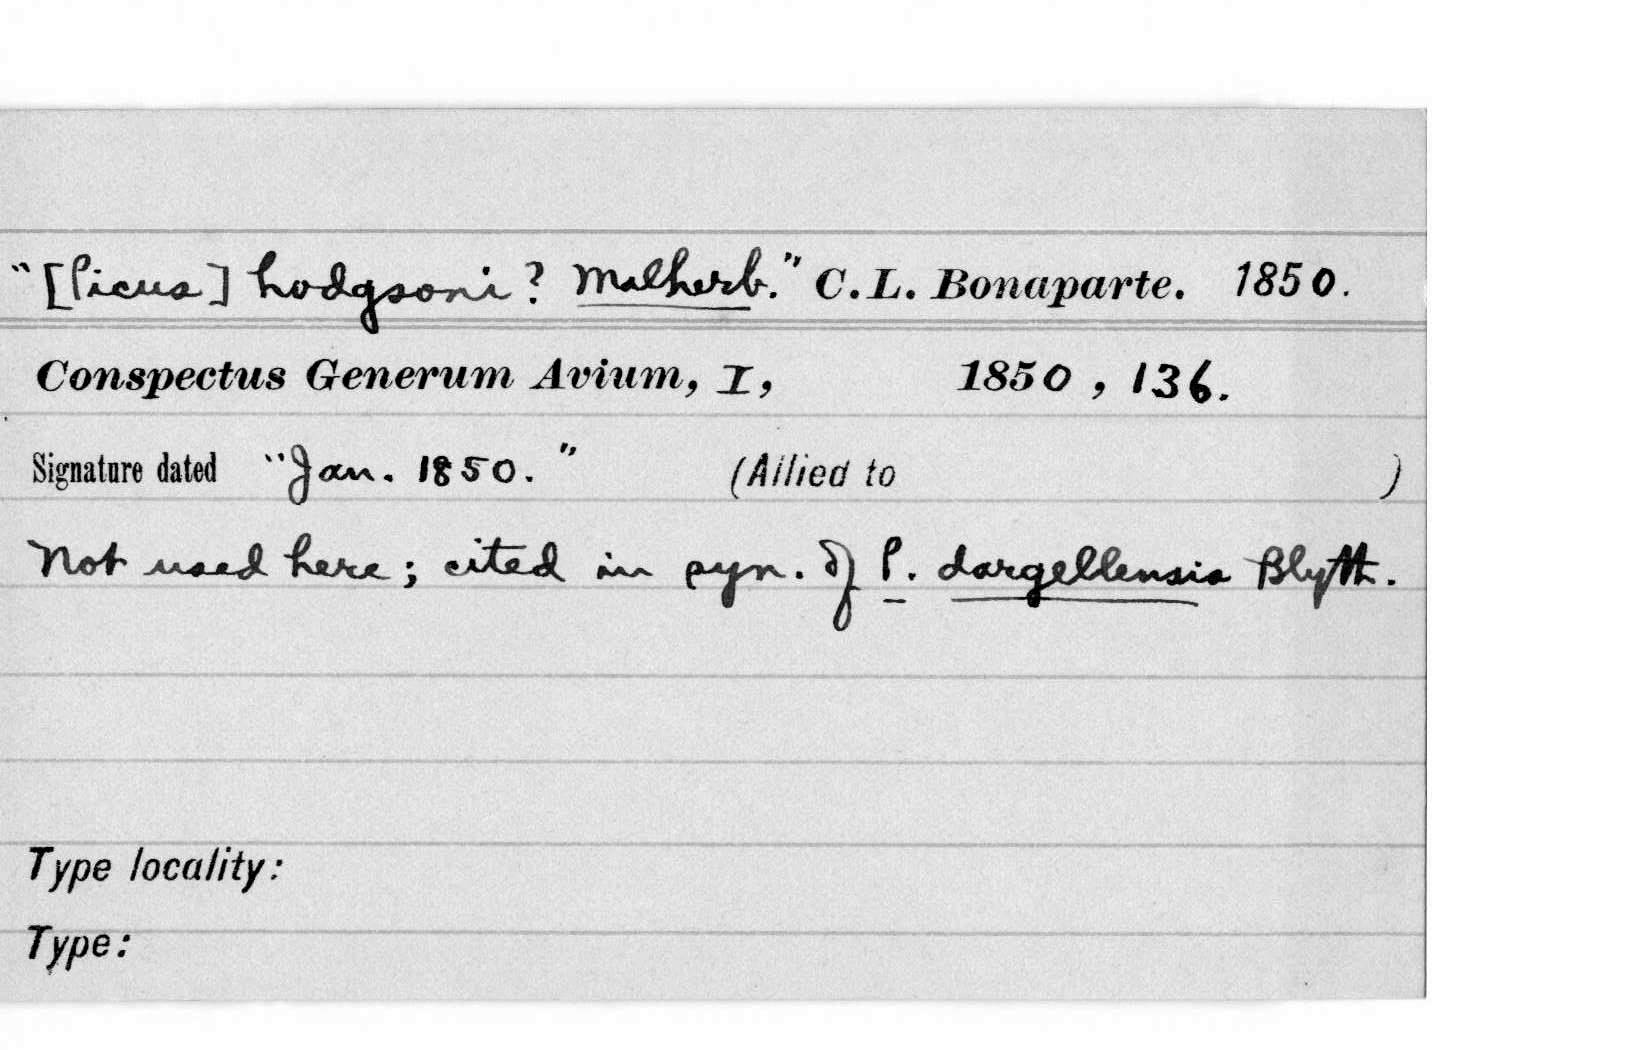 "[Picus] hodgsoni? Malherb." C. L. Bonaparte. 1850.
Conspectus Generum Avium, I, 1850, 136.
Signature dated "Jan. 1850." (Allied to )
Not used here; cited in syn. of P. dargellensis Blyth.
Type locality:
Type: